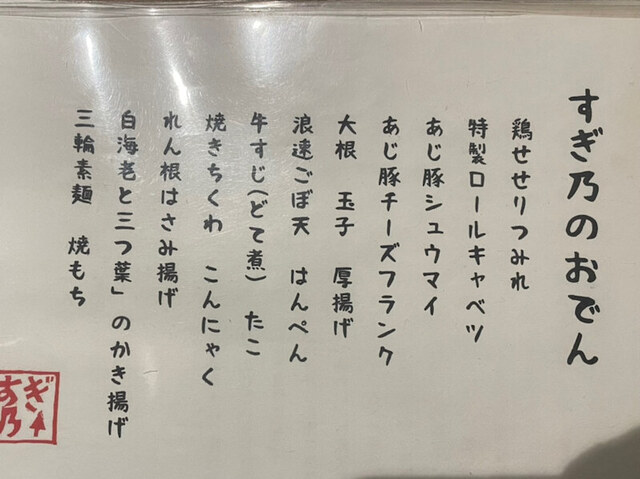 すぎ乃のおでん
鶏せせりつみれ
特製ロールキャベツ
あじ豚シュウマイ
あじ豚チーズフランク
大根 玉子 厚揚げ
浪速ごぼ天 はんぺん
牛すじ(どて煮) たこ
焼きちくわ こんにゃく
れん根はさみ揚げ
白海老と三つ葉」のかき揚げ
三輪素麺 焼もち
すぎ乃